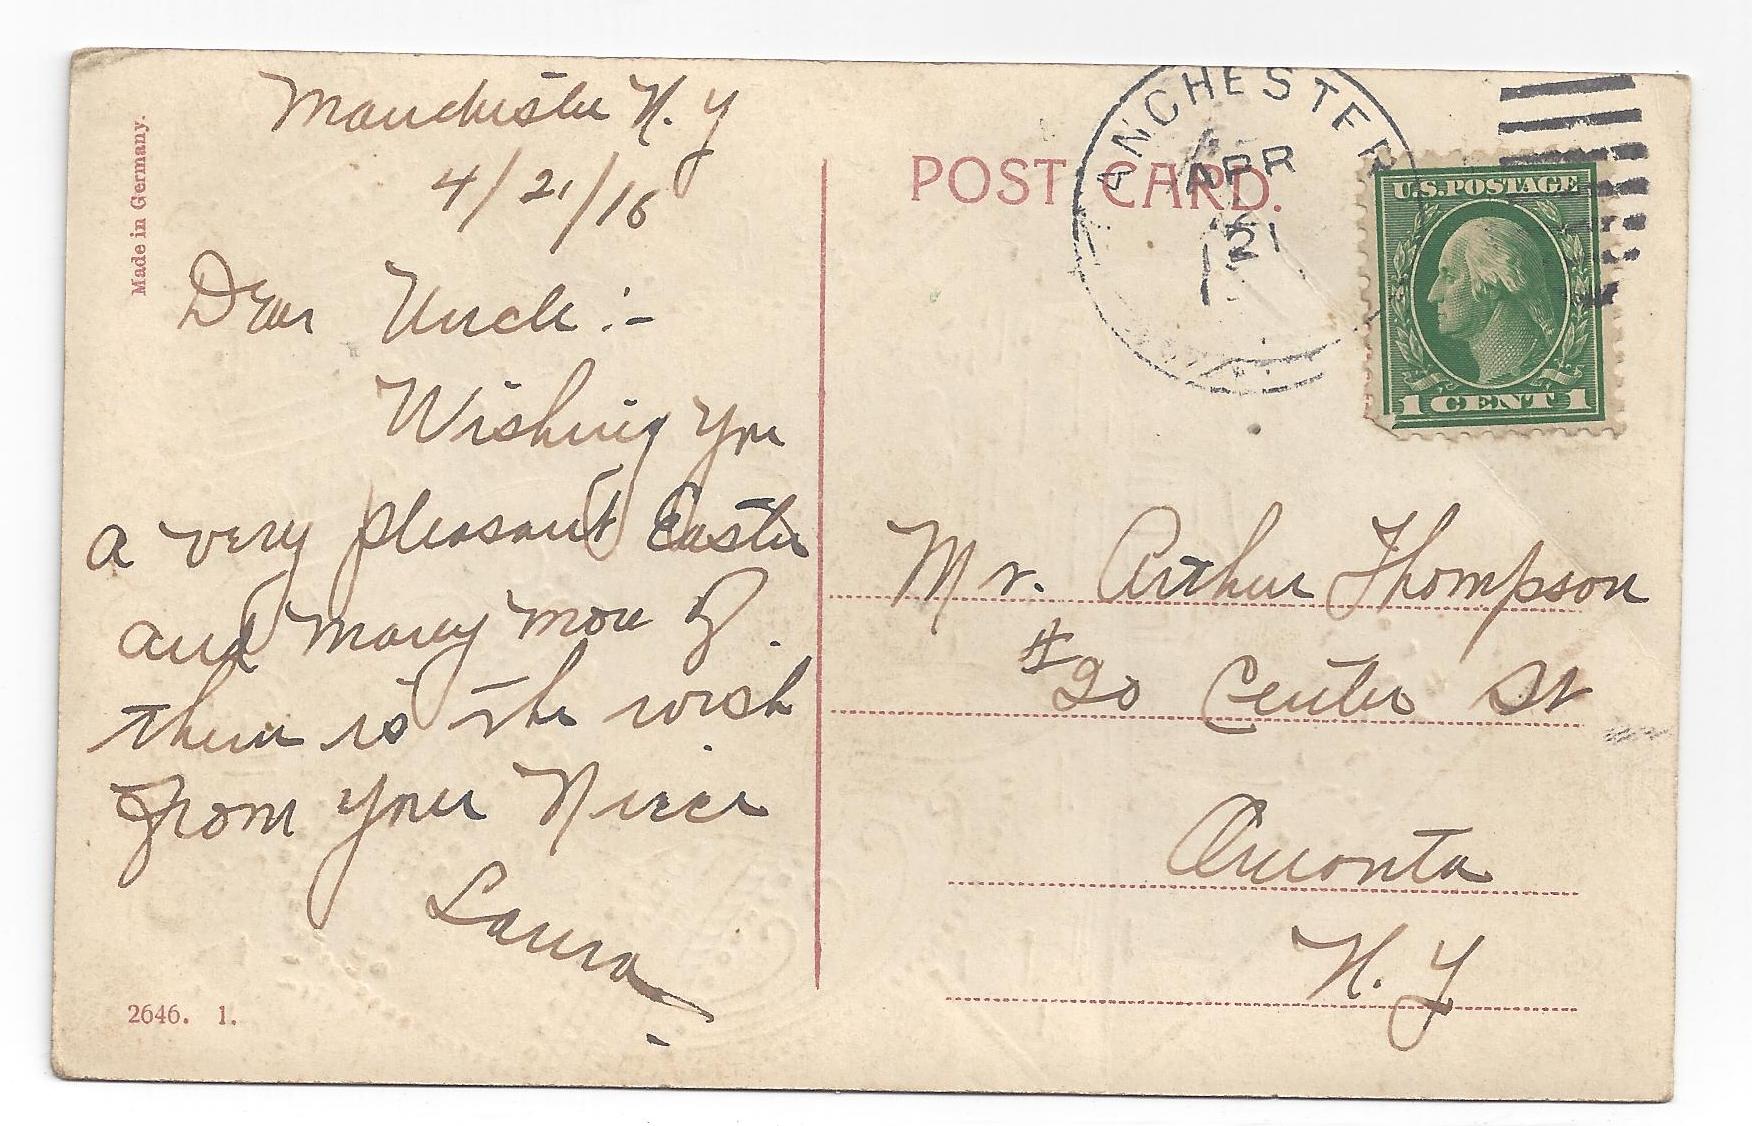 Made in Germany.
Manchester N. Y
4/21/16
Dear Uncle :-
Wishing you
a very pleasant Easter
and many more of
them is the wish
from your Niece
Laura
2646. 1.
POST CARD.
MANCHESTER
APR
21
U.S. POSTAGE
1 CENT 1
Mr. Arthur Thompson
#20 Center St
Oneonta
N. Y